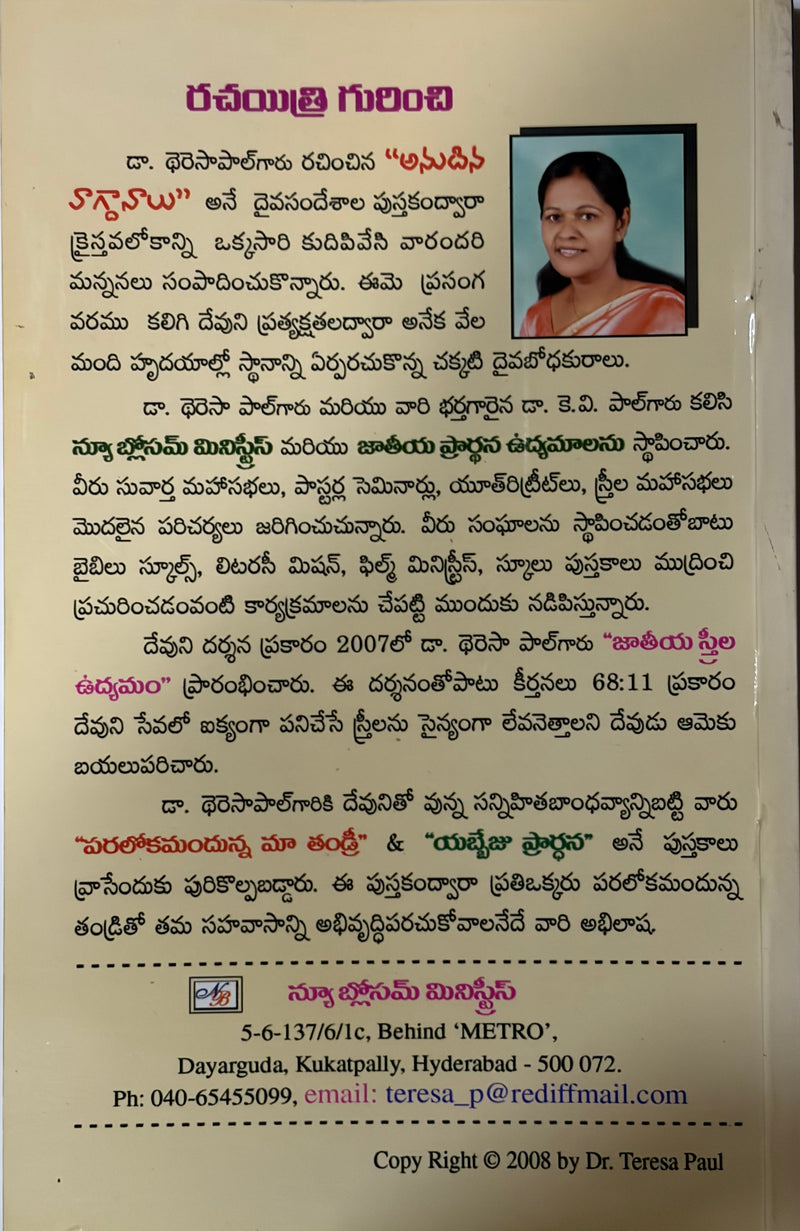 రచయిత్రి గురించి
డా. థెరెసాపాల్‌గారు రచించిన “అనుదిన
వాగ్దానాలు” అనే దైవసందేశాల పుస్తకంద్వారా
క్రైస్తవలోకాన్ని ఒక్కసారి కుదిపివేసి వారందరి
మన్ననలు సంపాదించుకొన్నారు. ఈమె ప్రసంగ
వరము కలిగి దేవుని ప్రత్యక్షతలద్వారా అనేక వేల
మంది హృదయాల్లో స్థానాన్ని ఏర్పరచుకొన్న చక్కటి దైవబోధకురాలు.
డా. థెరెసా పాల్‌గారు మరియు వారి భర్తగారైన డా. కె.వి. పాల్‌గారు కలిసి
న్యూ బ్లోసమ్ మినిస్ట్రీస్ మరియు జాతీయ ప్రార్థన ఉద్యమాలను స్థాపించారు.
వీరు సువార్త మహాసభలు, పాస్టర్ల సెమినార్లు, యూత్‌రిట్రీట్‌లు, స్త్రీల మహాసభలు
మొదలైన పరిచర్యలు జరిగించుచున్నారు. వీరు సంఘాలను స్థాపించడంతోబాటు
బైబిలు స్కూల్స్, లిటరసీ మిషన్, ఫిల్మ్ మినిస్ట్రీస్, స్కూలు పుస్తకాలు ముద్రించి
ప్రచురించడంవంటి కార్యక్రమాలను చేపట్టి ముందుకు నడిపిస్తున్నారు.
దేవుని దర్శన ప్రకారం 2007లో డా. థెరెసా పాల్‌గారు “జాతీయ స్త్రీల
ఉద్యమం” ప్రారంభించారు. ఈ దర్శనంతోపాటు కీర్తనలు 68:11 ప్రకారం
దేవుని సేవలో ఐక్యంగా పనిచేసే స్త్రీలను సైన్యంగా లేవనెత్తాలని దేవుడు ఆమెకు
బయలుపరిచారు.
డా. థెరెసాపాల్‌గారికి దేవునితో వున్న సన్నిహితబాంధవ్యాన్నిబట్టి వారు
“పరలోకమందున్న మా తండ్రీ” & “యబ్బేజు ప్రార్ధన” అనే పుస్తకాలు
వ్రాసేందుకు పురికొల్పబడ్డారు. ఈ పుస్తకంద్వారా ప్రతిఒక్కరు పరలోకమందున్న
తండ్రితో తమ సహవాసాన్ని అభివృద్ధిపరచుకోవాలనేదే వారి అభిలాష.
NB న్యూ బ్లోసమ్ మినిస్ట్రీస్
5-6-137/6/1c, Behind ‘METRO’,
Dayarguda, Kukatpally, Hyderabad - 500 072.
Ph: 040-65455099, email: teresa_p@rediffmail.com
Copy Right © 2008 by Dr. Teresa Paul